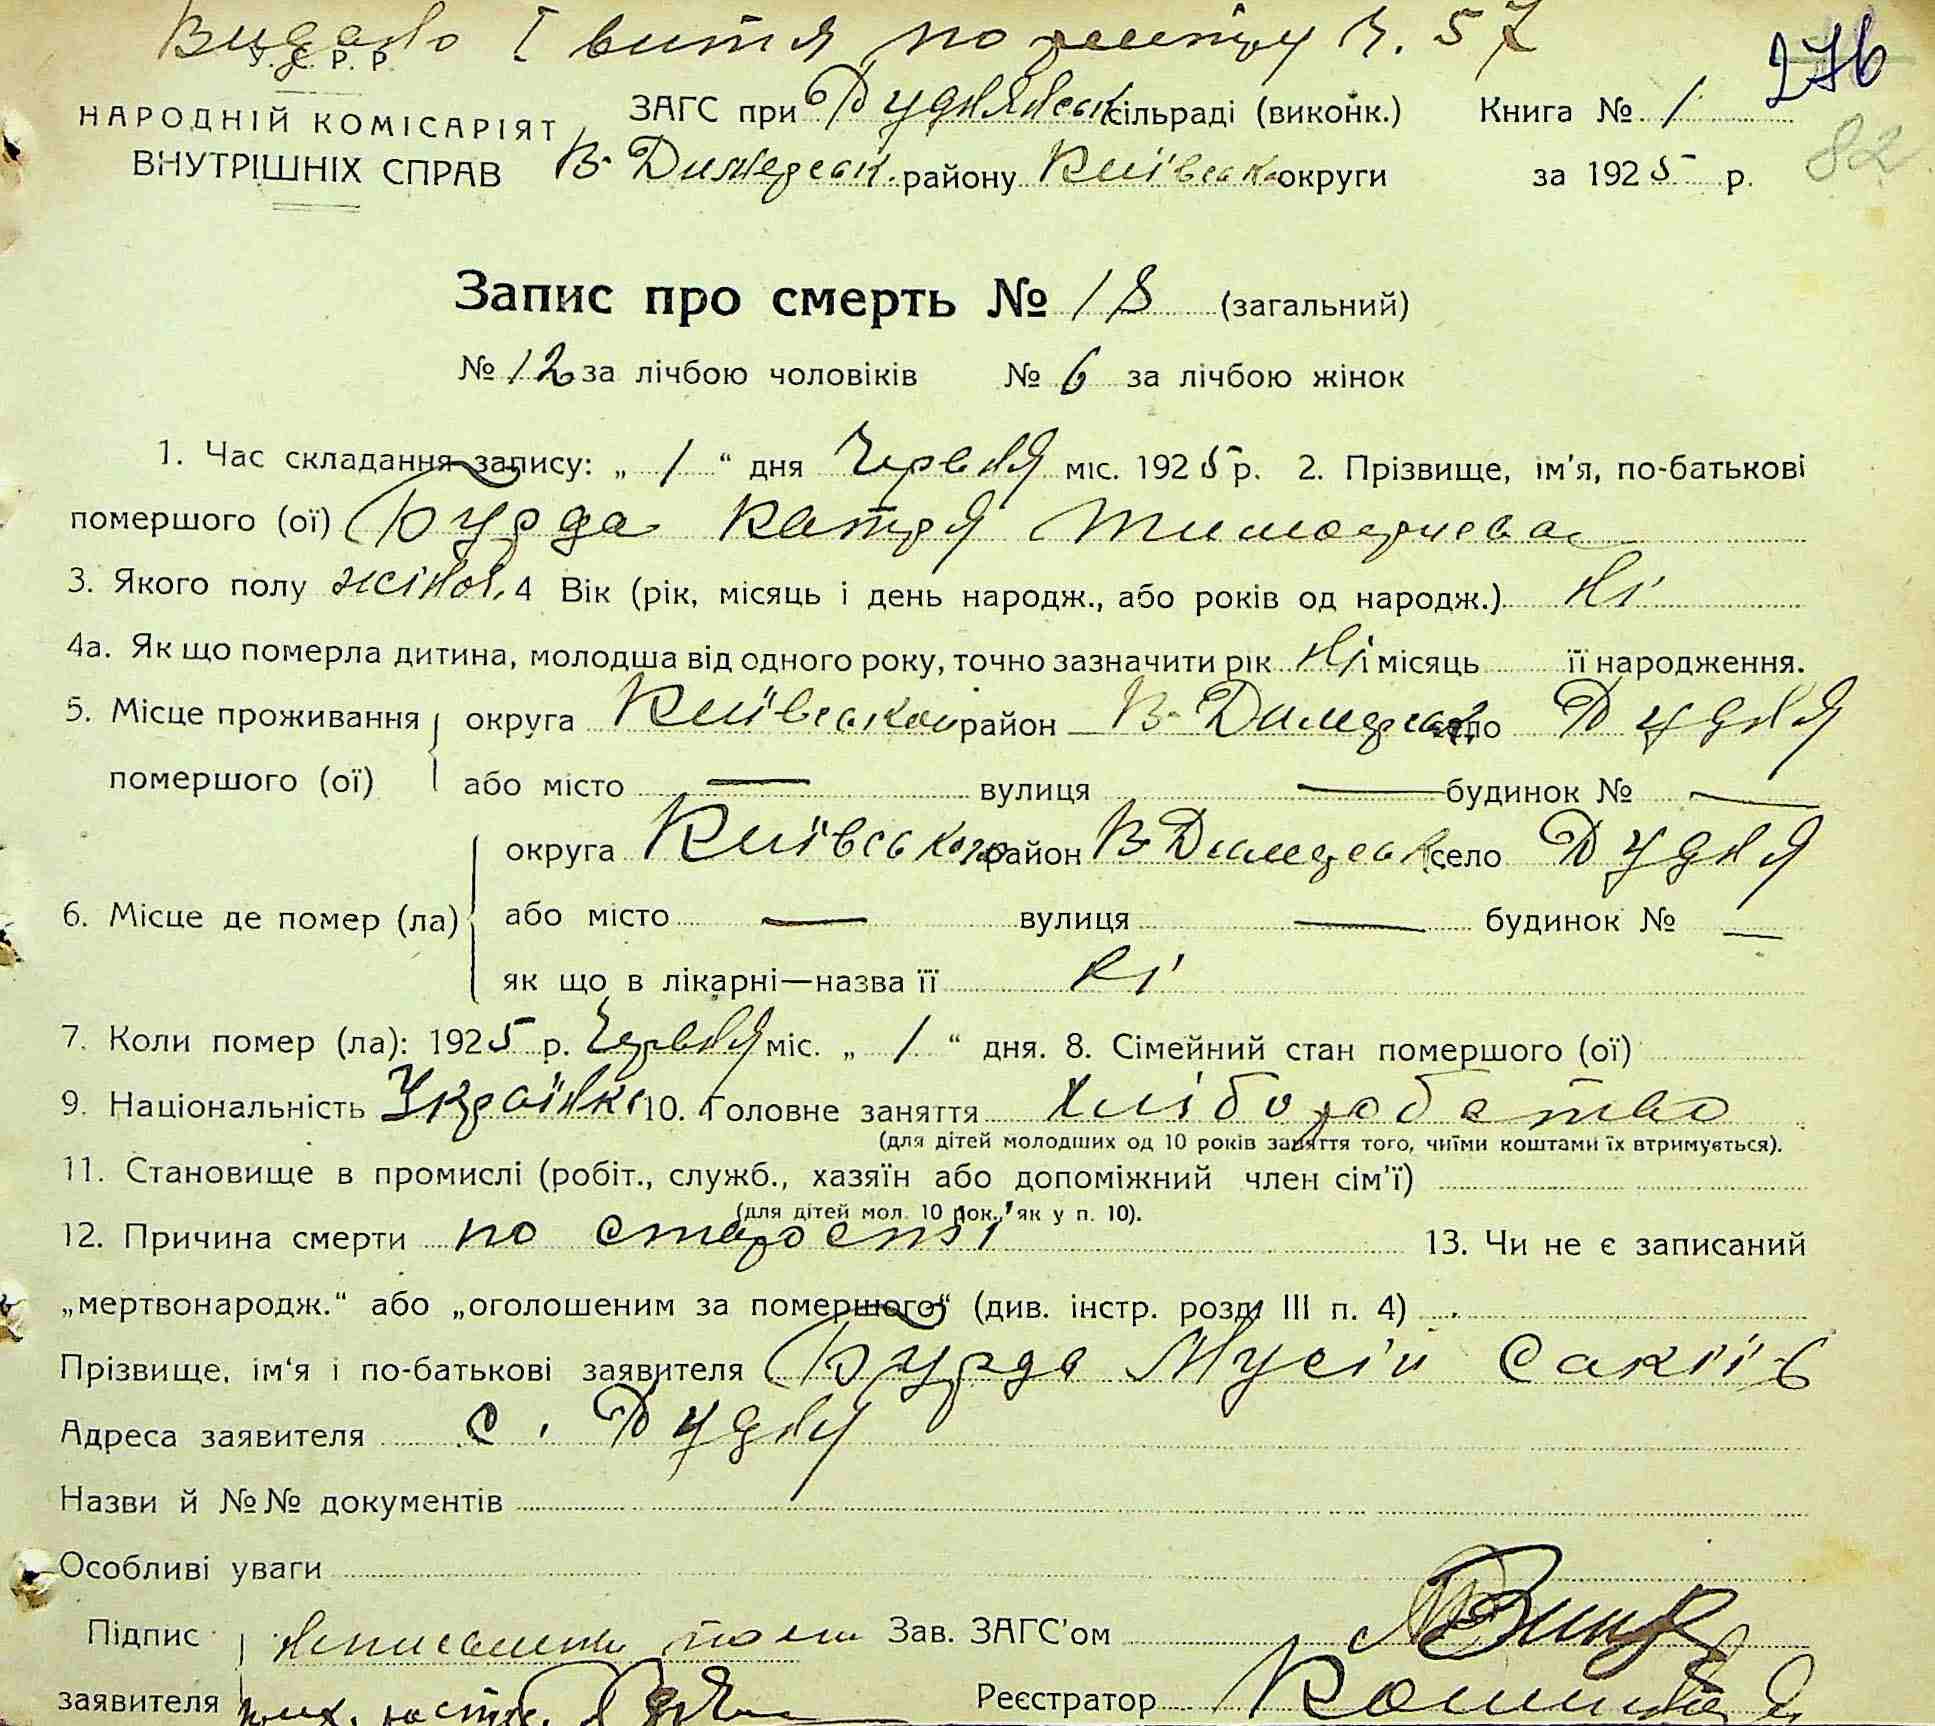 Видано І витяг по реєстру ч. 57
У. С. Р. Р.
276
НАРОДНІЙ КОМІСАРІЯТ ВНУТРІШНІХ СПРАВ
ЗАГС при Руднянськ сільраді (виконк.) Книга № 1
82
В-Димерськ. району Київсько округи за 1925 р.
Запис про смерть № 18 (загальний)
№ 12 за лічбою чоловіків № 6 за лічбою жінок
1. Час складання запису: „ 1 “ дня Червня міс. 1925 р. 2. Прізвище, ім'я, по-батькові
помершого (ої) Бурда Катря Тимофиева
3. Якого полу жіноч. 4 Вік (рік, місяць і день народж., або років од народж.) Ні
4а. Як що померла дитина, молодша від одного року, точно зазначити рік Ні і місяць її народження.
5. Місце проживання помершого (ої) округа Київської район В-Димерськ. село Рудня
або місто — вулиця — будинок № —
6. Місце де помер (ла) округа Київського район В-Димерськ. село Рудня
або місто — вулиця — будинок № —
як що в лікарні—назва її Ні
7. Коли помер (ла): 1925 р. Червня міс. „ 1 “ дня. 8. Сімейний стан помершого (ої)
9. Національність Українка 10. Головне заняття хліборобство
(для дітей молодших од 10 років заняття того, чиїми коштами їх втримується).
11. Становище в промислі (робіт., служб., хазяїн або допоміжний член сім'ї)
(для дітей мол. 10 рок., як у п. 10).
12. Причина смерти по старості 13. Чи не є записаний
„мертвонародж.“ або „оголошеним за помершого“ (див. інстр. розд. III п. 4)
Прізвище, ім'я і по-батькові заявителя Бурда Мусій Сакіїв
Адреса заявителя с. Рудня
Назви й №№ документів
Особливі уваги
Підпис заявителя Неписьмен Зав. ЗАГС'ом
Реєстратор